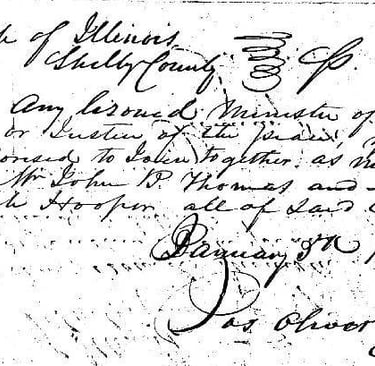 of Illinois
Shelby County
Any Licensed Minister of
or Justice of the peace
to Join together as
Mr John P. Thomas and
Hooper all of Said
January 3rd
Jas Oliver